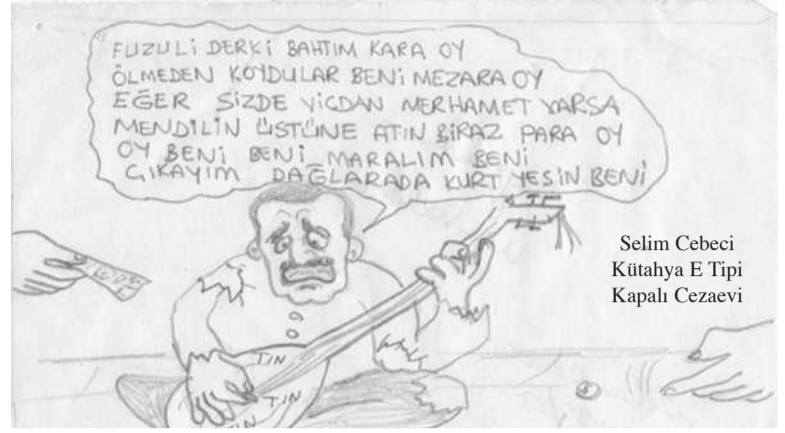 FUZULİ DERKİ BAHTIM KARA OY
ÖLMEDEN KOYDULAR BENİ MEZARA OY
EĞER SİZDE VİCDAN MERHAMET VARSA
MENDİLİN ÜSTÜNE ATIN BİRAZ PARA OY
OY BENİ BENİ MARALIM BENİ
ÇIKAYIM DAĞLARADA KURT YESİN BENİ
Selim Cebeci
Kütahya E Tipi
Kapalı Cezaevi
TIN
TIN
TIN